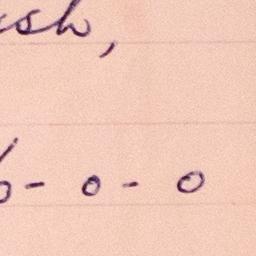 sh,
6 - 0 - 0